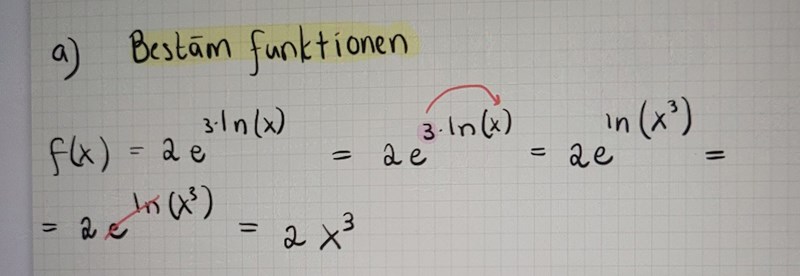 a) Bestäm funktionen
f(x) = 2e^{3·ln(x)} = 2e^{3·ln(x)} = 2e^{ln(x³)} =
= 2e^{ln(x³)} = 2x³